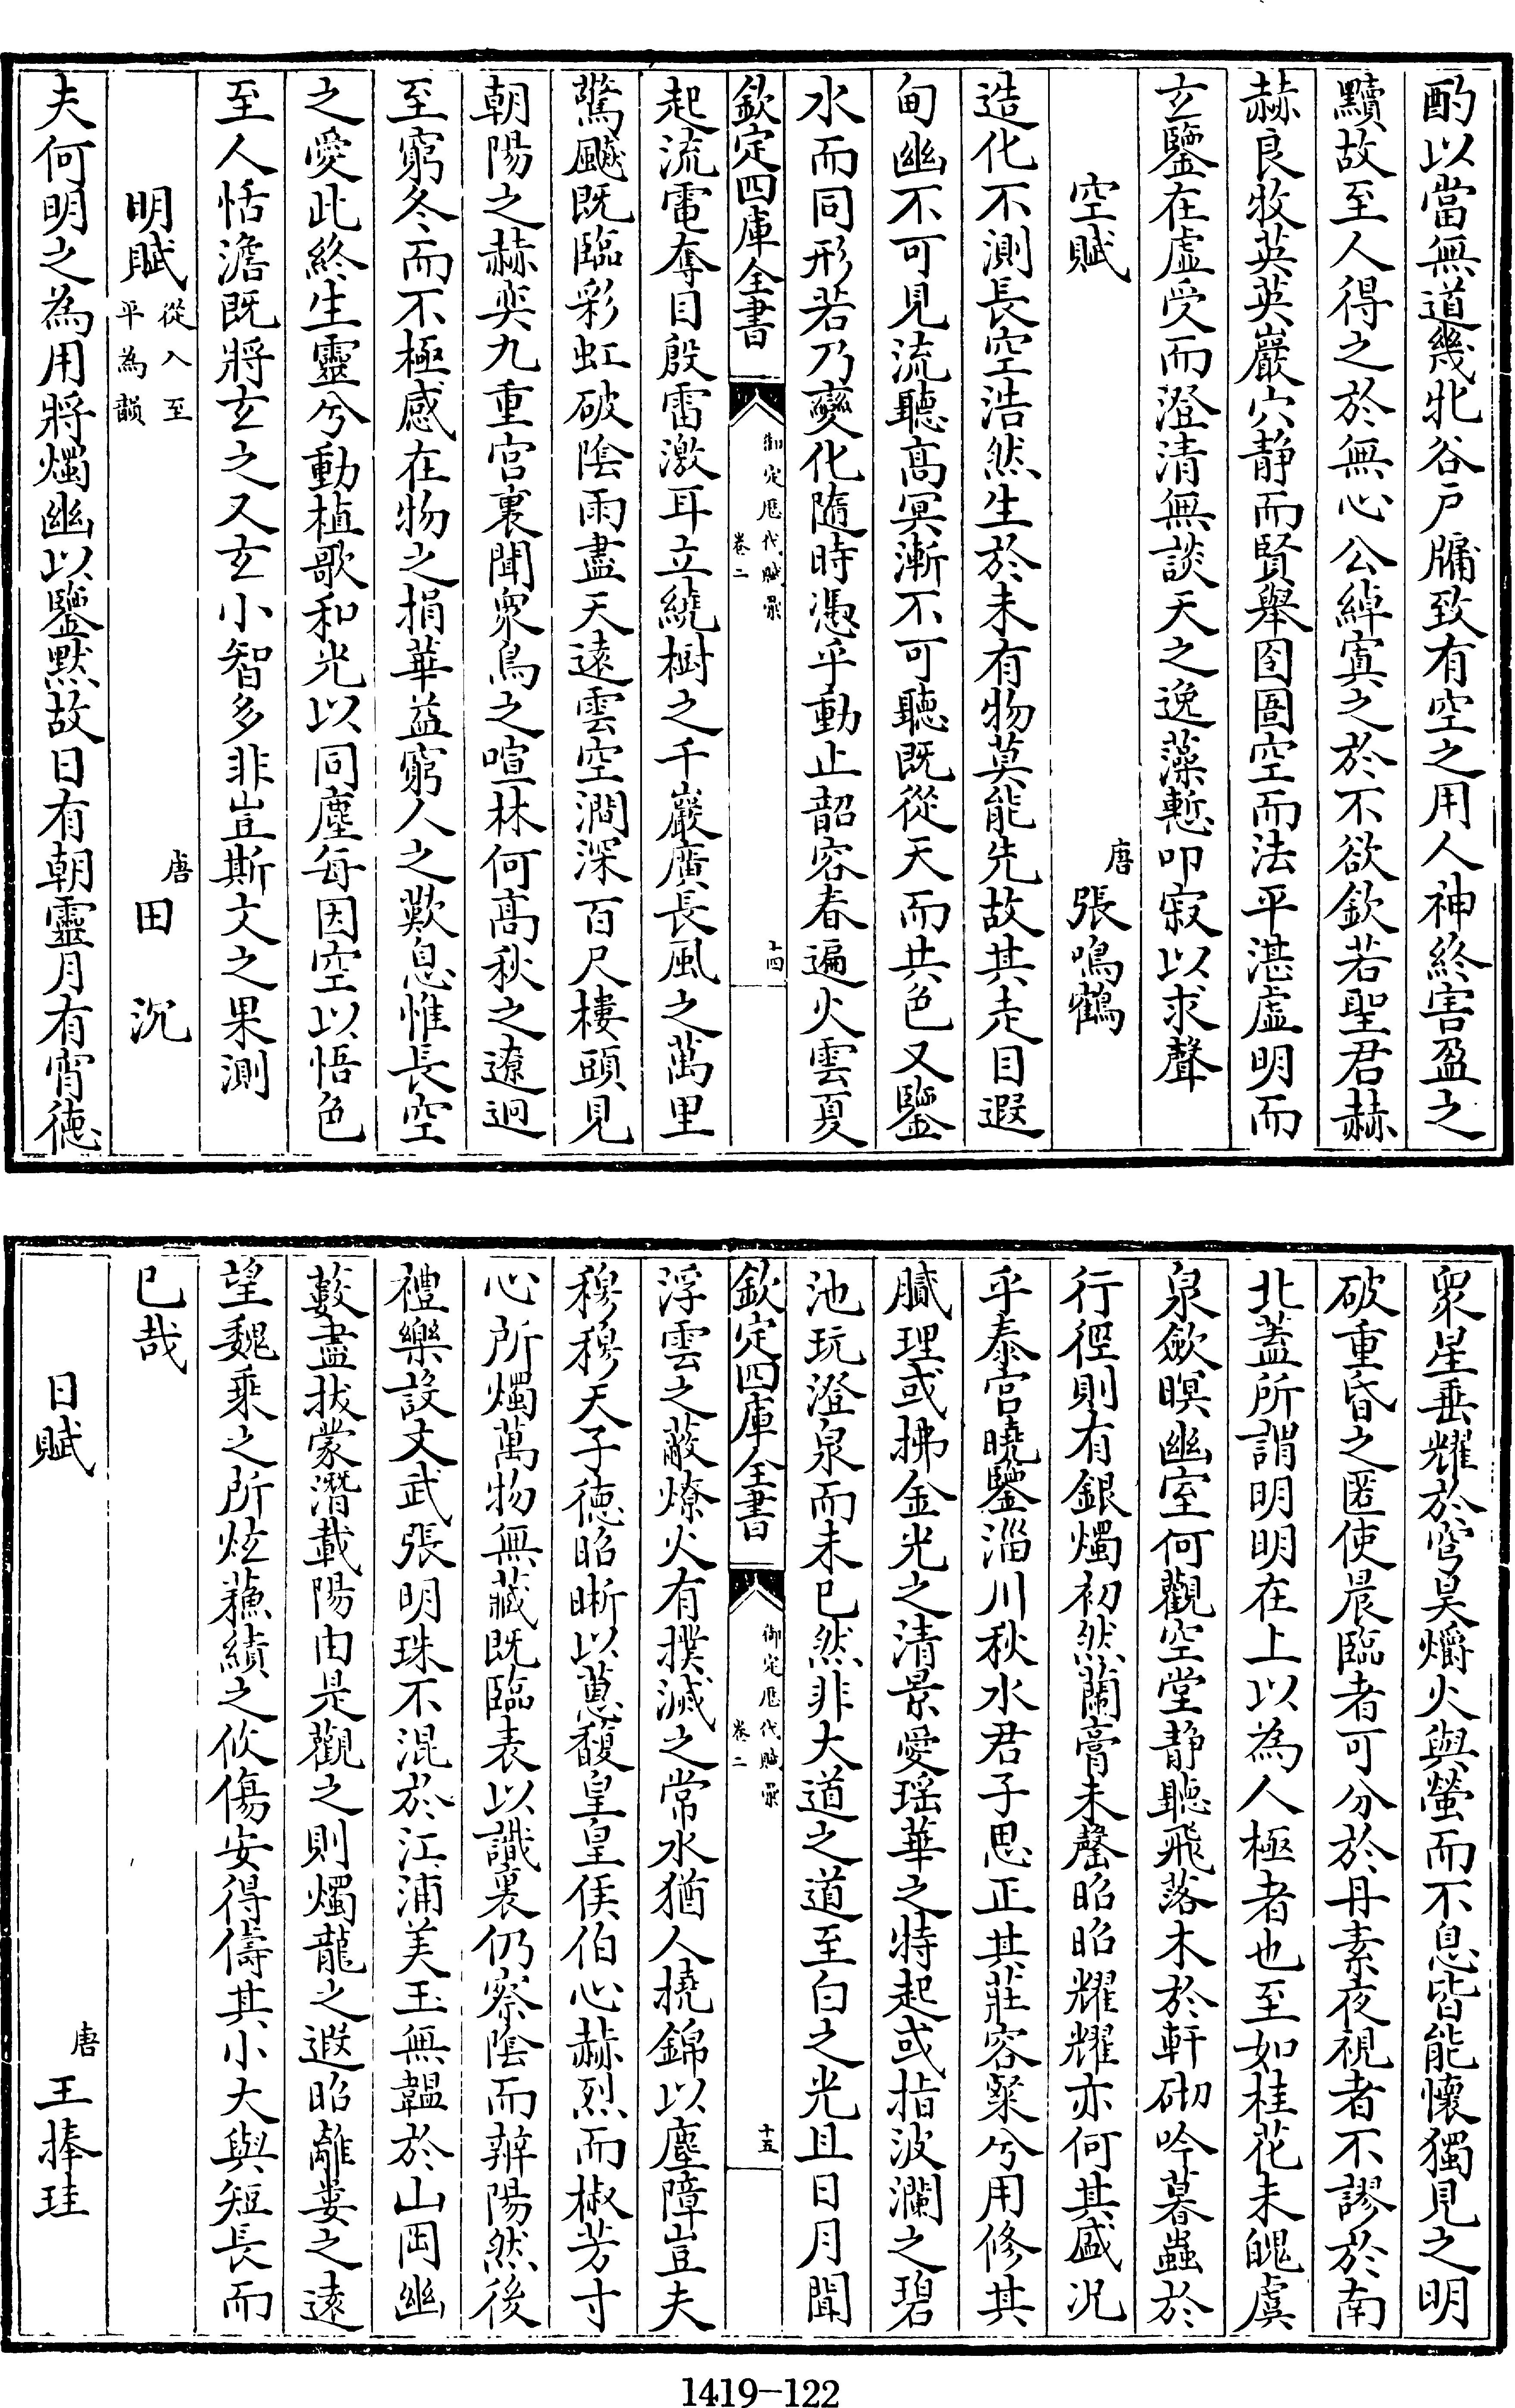 酌以當無道幾牝谷戸牖致有空之用人神終害盈之
黷故至人得之於無心公綽寘之於不欲欽若聖君赫
赫良牧英英巖穴靜而賢舉囹圄空而法平湛虛明而
玄鑒在虛受而澄清無談天之逸藻慙叩寂以求聲
空賦　唐張鳴鶴
造化不測長空浩然生於未有物莫能先故其走目遐
甸幽不可見流聽髙冥漸不可聽既從天而共色又鑒
水而同形若乃變化隨時憑乎動止韶容春遍火雲夏
欽定四庫全書　御定歷代賦彙　卷二　十四
起流電奪目殷雷激耳立繞樹之千巖廣長風之萬里
驚飈既臨彩虹破陰雨盡天遠雲空澗深百尺樓頭見
朝陽之赫奕九重宫裏聞衆鳥之喧林何髙秋之遼迥
至窮冬而不極感在物之捐華益窮人之歎息惟長空
之愛此終生靈兮動植歌和光以同塵每因空以悟色
至人恬澹既將玄之又玄小智多非豈斯文之果測
明賦從入至平為韻　唐田沉
夫何明之為用將燭幽以鑒黙故日有朝靈月有宵徳
衆星垂耀於穹昊爝火與螢而不息皆能懷獨見之明
破重昏之匿使晨臨者可分於丹素夜視者不謬於南
北蓋所謂明明在上以為人極者也至如桂花未魄虞
泉斂暝幽室何觀空堂靜聽飛落木於軒砌吟暮蟲於
行徑則有銀燭初然蘭膏未罄昭昭耀耀亦何其盛况
乎泰宫曉鑒淄川秋水君子思正其莊容粲兮用修其
膩理或拂金光之清景愛瑶華之特起或指波瀾之碧
池玩澄泉而未已然非大道之道至白之光且日月聞
欽定四庫全書　御定歷代賦彙　卷二　十五
浮雲之蔽燎火有撲滅之常水猶人撓錦以塵障豈夫
穆穆天子徳昭晰以蕙馥皇皇侯伯心赫烈而椒芳寸
心所燭萬物無藏既臨表以識裏仍察陰而辨陽然後
禮樂設文武張明珠不混於江浦美玉無韞於山岡幽
藪盡拔蒙潛載陽由是觀之則燭龍之遐昭離婁之遠
望魏乘之所炫蘓績之攸傷安得儔其小大與短長而
已哉
日賦　唐王捧珪
1419-122